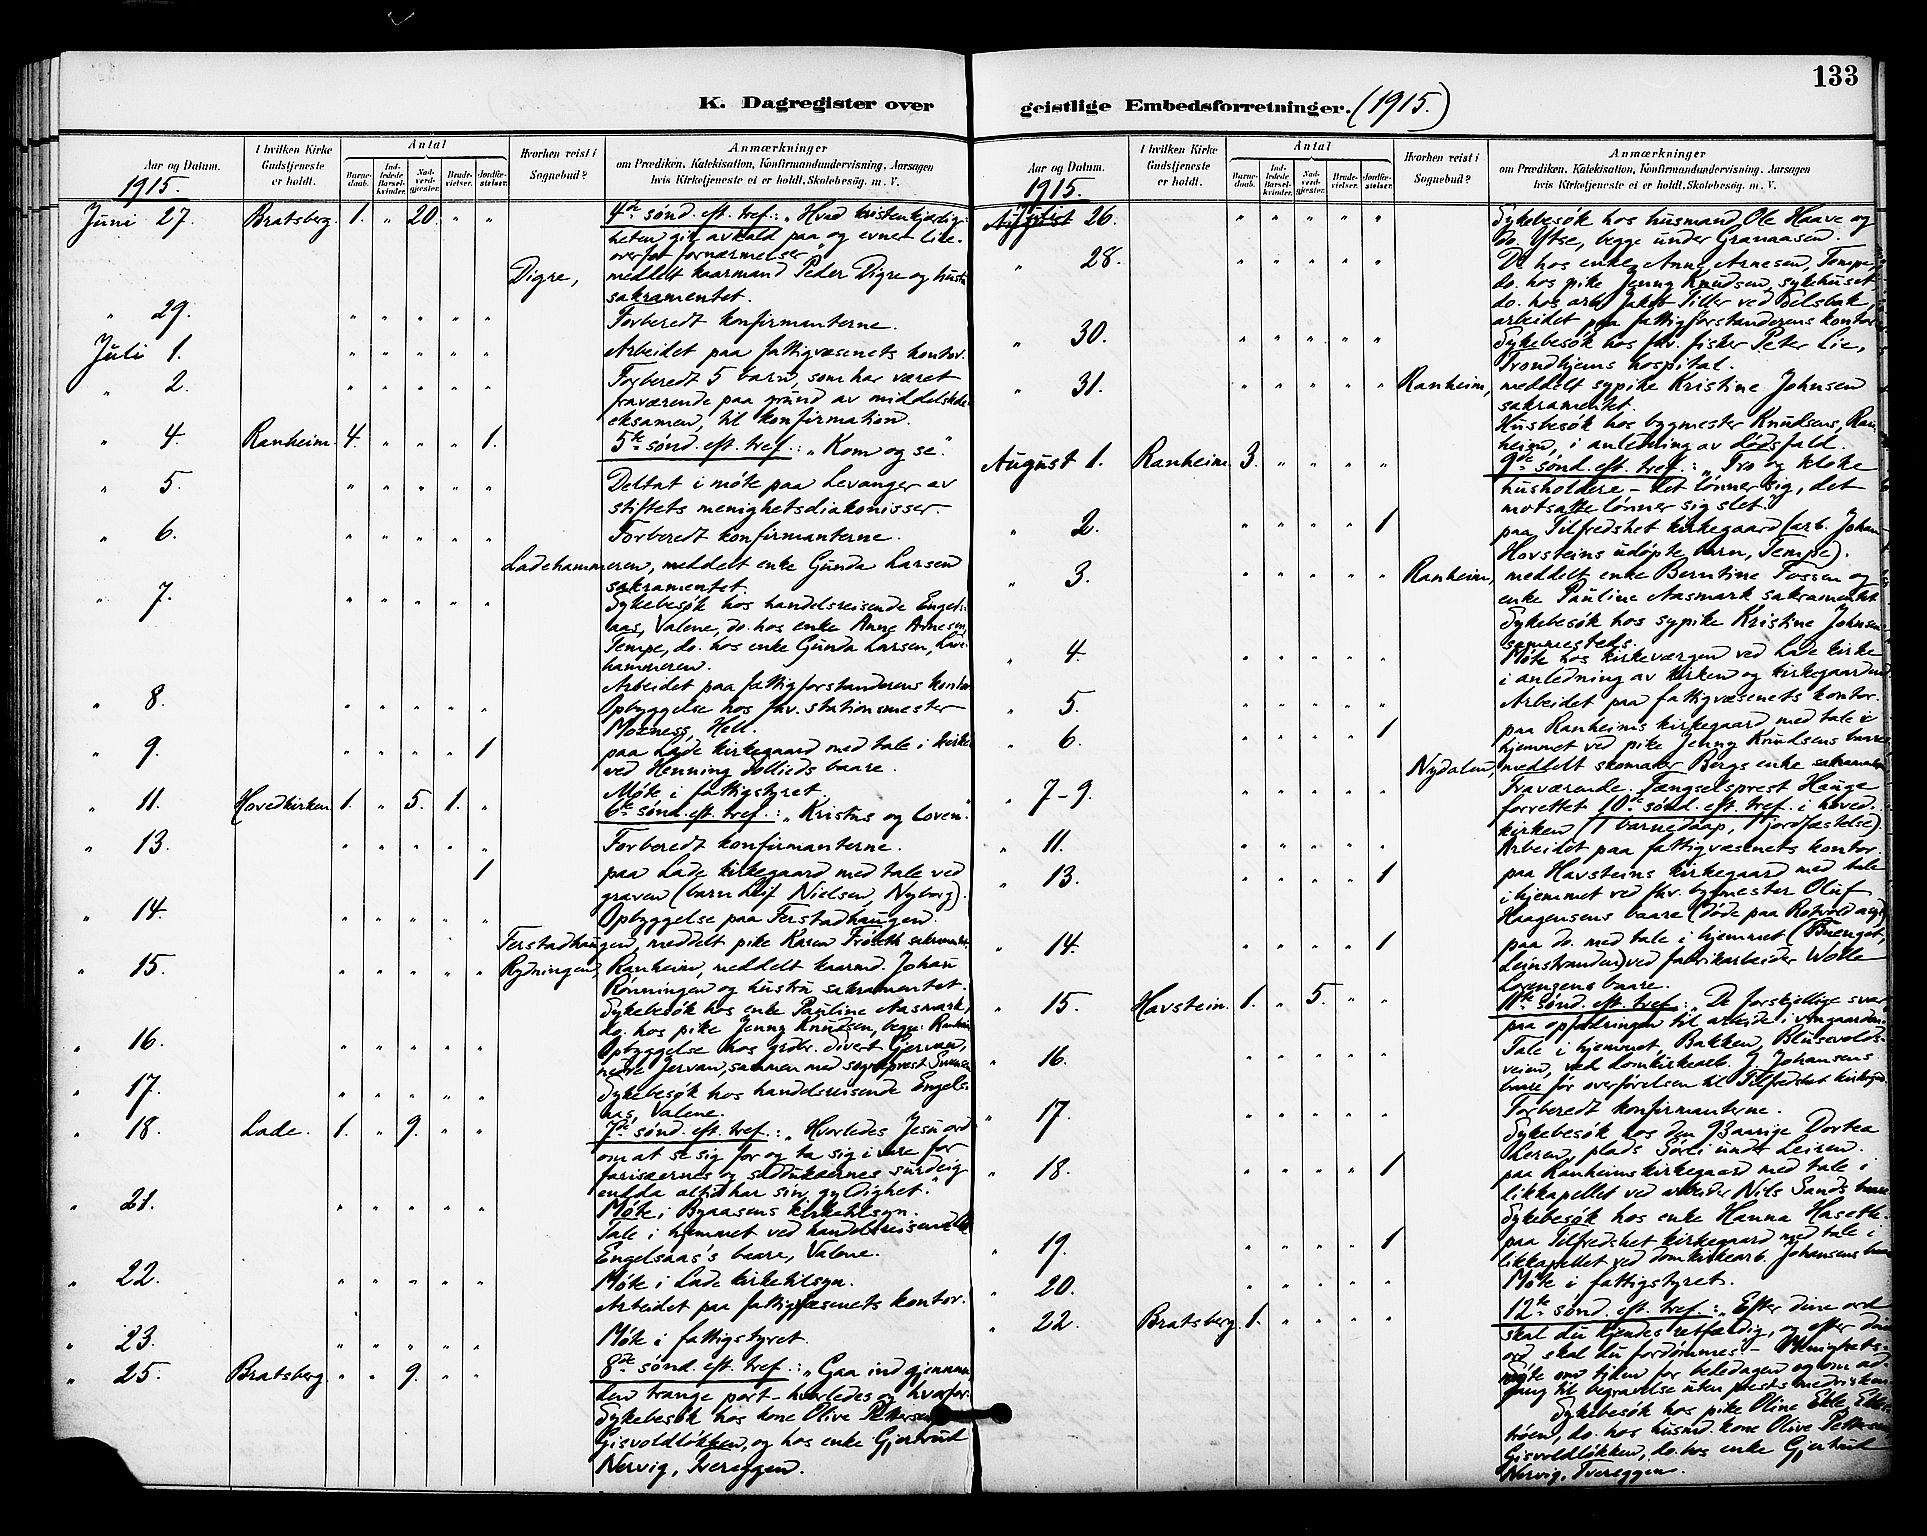 133
K. Dagregister over
Aar og Datum.
I hvilken Kirke Gudstjeneste er holdt.
Antal
Barnedaab.
Indledede Barselkvinder.
Nadverdgjester.
Brudevielser.
Jordfæstelser.
Hvorhen reist i Sognebud?
Anmærkninger
om Prædiken, Katekisation, Konfirmandundervisning, Aarsagen
hvis Kirketjeneste ei er holdt, Skolebesøg, m. V.
1915.
Juni 27. Bratsberg. 1. „ 20. „ „ 4de sønd. eft. tref.: „Hvad kristenkjærlig-
heten gir avkald paa og evner like-
overfor fornærmelser"
Digre, meddelt kaarmand Peder Digre og hustru
sakramentet.
„ 29. „ „ „ „ „ Forberedt konfirmanterne.
Juli 1. „ „ „ „ „ Arbeidet paa fattigvæsenets kontor.
„ 2. „ „ „ „ „ Forberedt 5 barn, som har været
fraværende paa grund av middelskole-
eksamen, til konfirmation.
„ 4. Ranheim. 4. „ „ „ 1. 5te sønd. eft. tref.: „Kom og se."
„ 5. „ „ „ „ „ Deltat i møte paa Levanger av
stiftets menighetsdiakonisser
„ 6. „ „ „ „ „ Forberedt konfirmanterne.
Ladehammeren, meddelt enke Gunda Larsen
sakramentet.
„ 7. „ „ „ „ „ Sykebesøk hos handelsreisende Engels-
aas, Valene, do. hos enke Anne Arnesen,
Tempe, do. hos enke Gunda Larsen, Lade-
hammeren.
Arbeidet paa fattigforstanderens kontor
„ 8. „ „ „ „ „ Opbyggelse hos fhv. stationsmester
Moxness, Hell.
„ 9. „ „ „ „ 1 paa Lade kirkegaard med tale i kirken
ved Henning Sollieds baare.
Møte i fattigstyret.
„ 11. Hovedkirken 1. „ 5. 1. „ 6te sønd. eft. tref.: „Kristus og loven."
„ 13. „ „ „ „ „ Forberedt konfirmanterne.
1 paa Lade kirkegaard med tale ved
graven (barn Leif Nielsen, Nyborg).
„ 14. „ „ „ „ „ Opbyggelse paa Ferstadhaugen.
Ferstadhaugen, meddelt pike Karen Frøseth sakramentet
„ 15. „ „ „ „ „ Rydningen, Ranheim, meddelt kaarmd. Johan
Rønningen og hustru sakramentet.
Sykebesøk hos enke Pauline Aasmark,
do. hos pike Jenny Knudsen, begge Ranheim
„ 16. „ „ „ „ „ Opbyggelse hos grdbr. Sivert Gjervan,
nedre Jervan, sammen med sogneprest Svensen
„ 17. „ „ „ „ „ Sykebesøk hos handelsreisende Engels-
aas, Valene.
„ 18. Lade. 1. „ 9. „ „ 7de sønd. eft. tref.: „Hvorledes Jesu ord
om at se sig for og ta sig i vare for
farisæernes og sadukæernes surdeig
endda altid har sin gyldighet."
„ 21. „ „ „ „ „ Møte i Byaasens kirketilsyn.
Tale i hjemmet ved handelsreisende
Engelsaas's baare, Valene.
„ 22. „ „ „ „ „ Møte i Lade kirketilsyn.
Arbeidet paa fattigvæsenets kontor.
„ 23. „ „ „ „ „ Møte i fattigstyret.
„ 25. Bratsberg „ „ 9. „ „ 8de sønd. eft. tref.: „Gaa ind gjennem
den trange port – hvorledes og hvorfor.
Sykebesøk hos kone Olive Pettersen,
Gisvoldløkken, og hos enke Gjertrud
Nervig, Tvereggen.
geistlige Embedsforretninger. (1915.)
Aar og Datum.
I hvilken Kirke Gudstjeneste er holdt.
Antal
Barnedaab.
Indledede Barselkvinder.
Nadverdgjester.
Brudevielser.
Jordfæstelser.
Hvorhen reist i Sognebud?
Anmærkninger
om Prædiken, Katekisation, Konfirmandundervisning, Aarsagen
hvis Kirketjeneste ei er holdt, Skolebesøg, m. V.
1915.
Juli 26. „ „ „ „ „ Sykebesøk hos husmand Ole Haave og
do. Ytse, begge under Granaasen.
„ 28. „ „ „ „ „ Do hos enke Anne Arnesen, Tempe,
do. hos pike Jenny Knudsen, sykehuset
do. hos arb. Jakob Tiller ved Selsbak,
arbeidet paa fattigforstanderens kontor
„ 30. „ „ „ „ „ Sykebesøk hos fhv. fisker Peter Lie,
Trondhjems hospital.
„ 31. „ „ „ „ „ Ranheim, meddelt sypike Kristine Johnsen
sakramentet.
Husbesøk hos bygmester Knudsens, Ran-
heim, i anledning av dødsfald.
August 1. Ranheim. 3. „ „ „ „ 9de sønd. eft. tref.: „Tro og kloke
husholdere – det lønner sig, det
motsatte lønner sig slet
„ 2. „ „ „ „ 1 paa Tilfredshet kirkegaard (arb. Johan
Hovsteins udøpte barn, Tempe).
„ 3. „ „ „ „ „ Ranheim, meddelt enke Berntine Fossen og
enke Pauline Aasmark sakramentet
Sykebesøk hos sypike Kristine Johnsen
sammesteds.
„ 4. „ „ „ „ „ Møte hos kirkeværgen ved Lade kirke
i anledning av kirken og kirkegaarden
„ 5. „ „ „ „ „ Arbeidet paa fattigvæsenets kontor.
„ 6. „ „ „ „ 1 paa Ranheims kirkegaard med tale i
hjemmet ved pike Jenny Knudsens baare
Nydalen, meddelt skomaker Bergs enke sakramentet
„ 7–9. „ „ „ „ „ Fraværende. Fængselsprest Hauge
forrettet 10de sønd. eft. tref. i hoved-
kirken (1 barnedaap, 1 jordfæstelse).
„ 11. „ „ „ „ „ Arbeidet paa fattigvæsenets kontor.
„ 13. „ „ „ „ 1 paa Havsteins kirkegaard med tale
i hjemmet ved fhv. bygmester Oluf
Haagensens baare (døde paa Rotvold asyl)
„ 14. „ „ „ „ 1 paa do. med tale i hjemmet (Buenget,
Leinstranden) ved fabrikarbeider Wolle
Lorenzens baare.
„ 15. Havstein. 1. „ 5. „ „ 11te sønd. eft. tref.: „De forskjellige svar
paa opfordringen til arbeide i vingaarden
„ 16. „ „ „ „ „ Tale i hjemmet Bakken, Blusevolds-
veien, ved domkirkearb. J. Johansens
baare før overførelsen til Tilfredshet kirkegd.
„ 17. „ „ „ „ „ Forberedt konfirmanterne.
Sykebesøk hos den 93aarige Dortea
Leren, plads Sørli under Leiren.
„ 18. „ „ „ „ 1 paa Ranheims kirkegaard med tale i
likkapellet ved arbeider Nils Sands baare
Sykebesøk hos enke Hanna Haseth.
„ 19. „ „ „ „ 1 paa Tilfredshet kirkegaard med tale i
likkapellet ved domkirkearb. Johansens baare
„ 20. „ „ „ „ „ Møte i fattigstyret.
„ 22. Bratsberg 1. „ „ „ „ 12te sønd. eft. tref.: „Efter dine ord
skal du kjendes retfærdig, og efter dine
ord skal du fordømmes. – Menighets-
møte om tiden for bededagen og om ad-
gang til begravelse uten prests medvirken
Sykebesøk hos pike Oline Ekle, Ekle-
trøen, do. hos husmd. kone Olive Pettersen
Gisvoldløkken, do. hos enke Gjertrud
Nervig, Tvereggen.